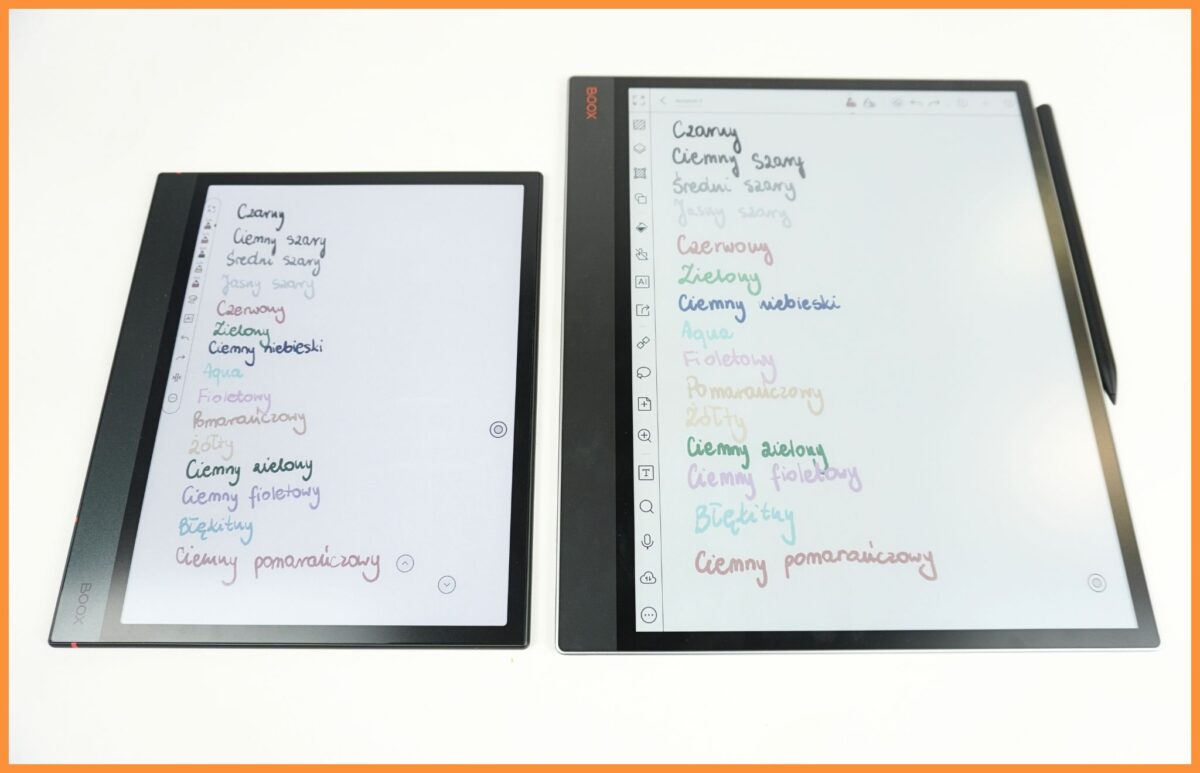 BOOX
Czarny
Ciemny szary
Średni szary
Jasny szary
Czerwony
Zielony
Ciemny niebieski
Aqua
Fioletowy
Pomarańczowy
Żółty
Ciemny zielony
Ciemny fioletowy
Błękitny
Ciemny pomarańczowy
BOOX
Czarny
Ciemny szary
Średni szary
Jasny szary
Czerwony
Zielony
Ciemny niebieski
Aqua
Fioletowy
Pomarańczowy
Żółty
Ciemny zielony
Ciemny fioletowy
Błękitny
Ciemny pomarańczowy
AI
T